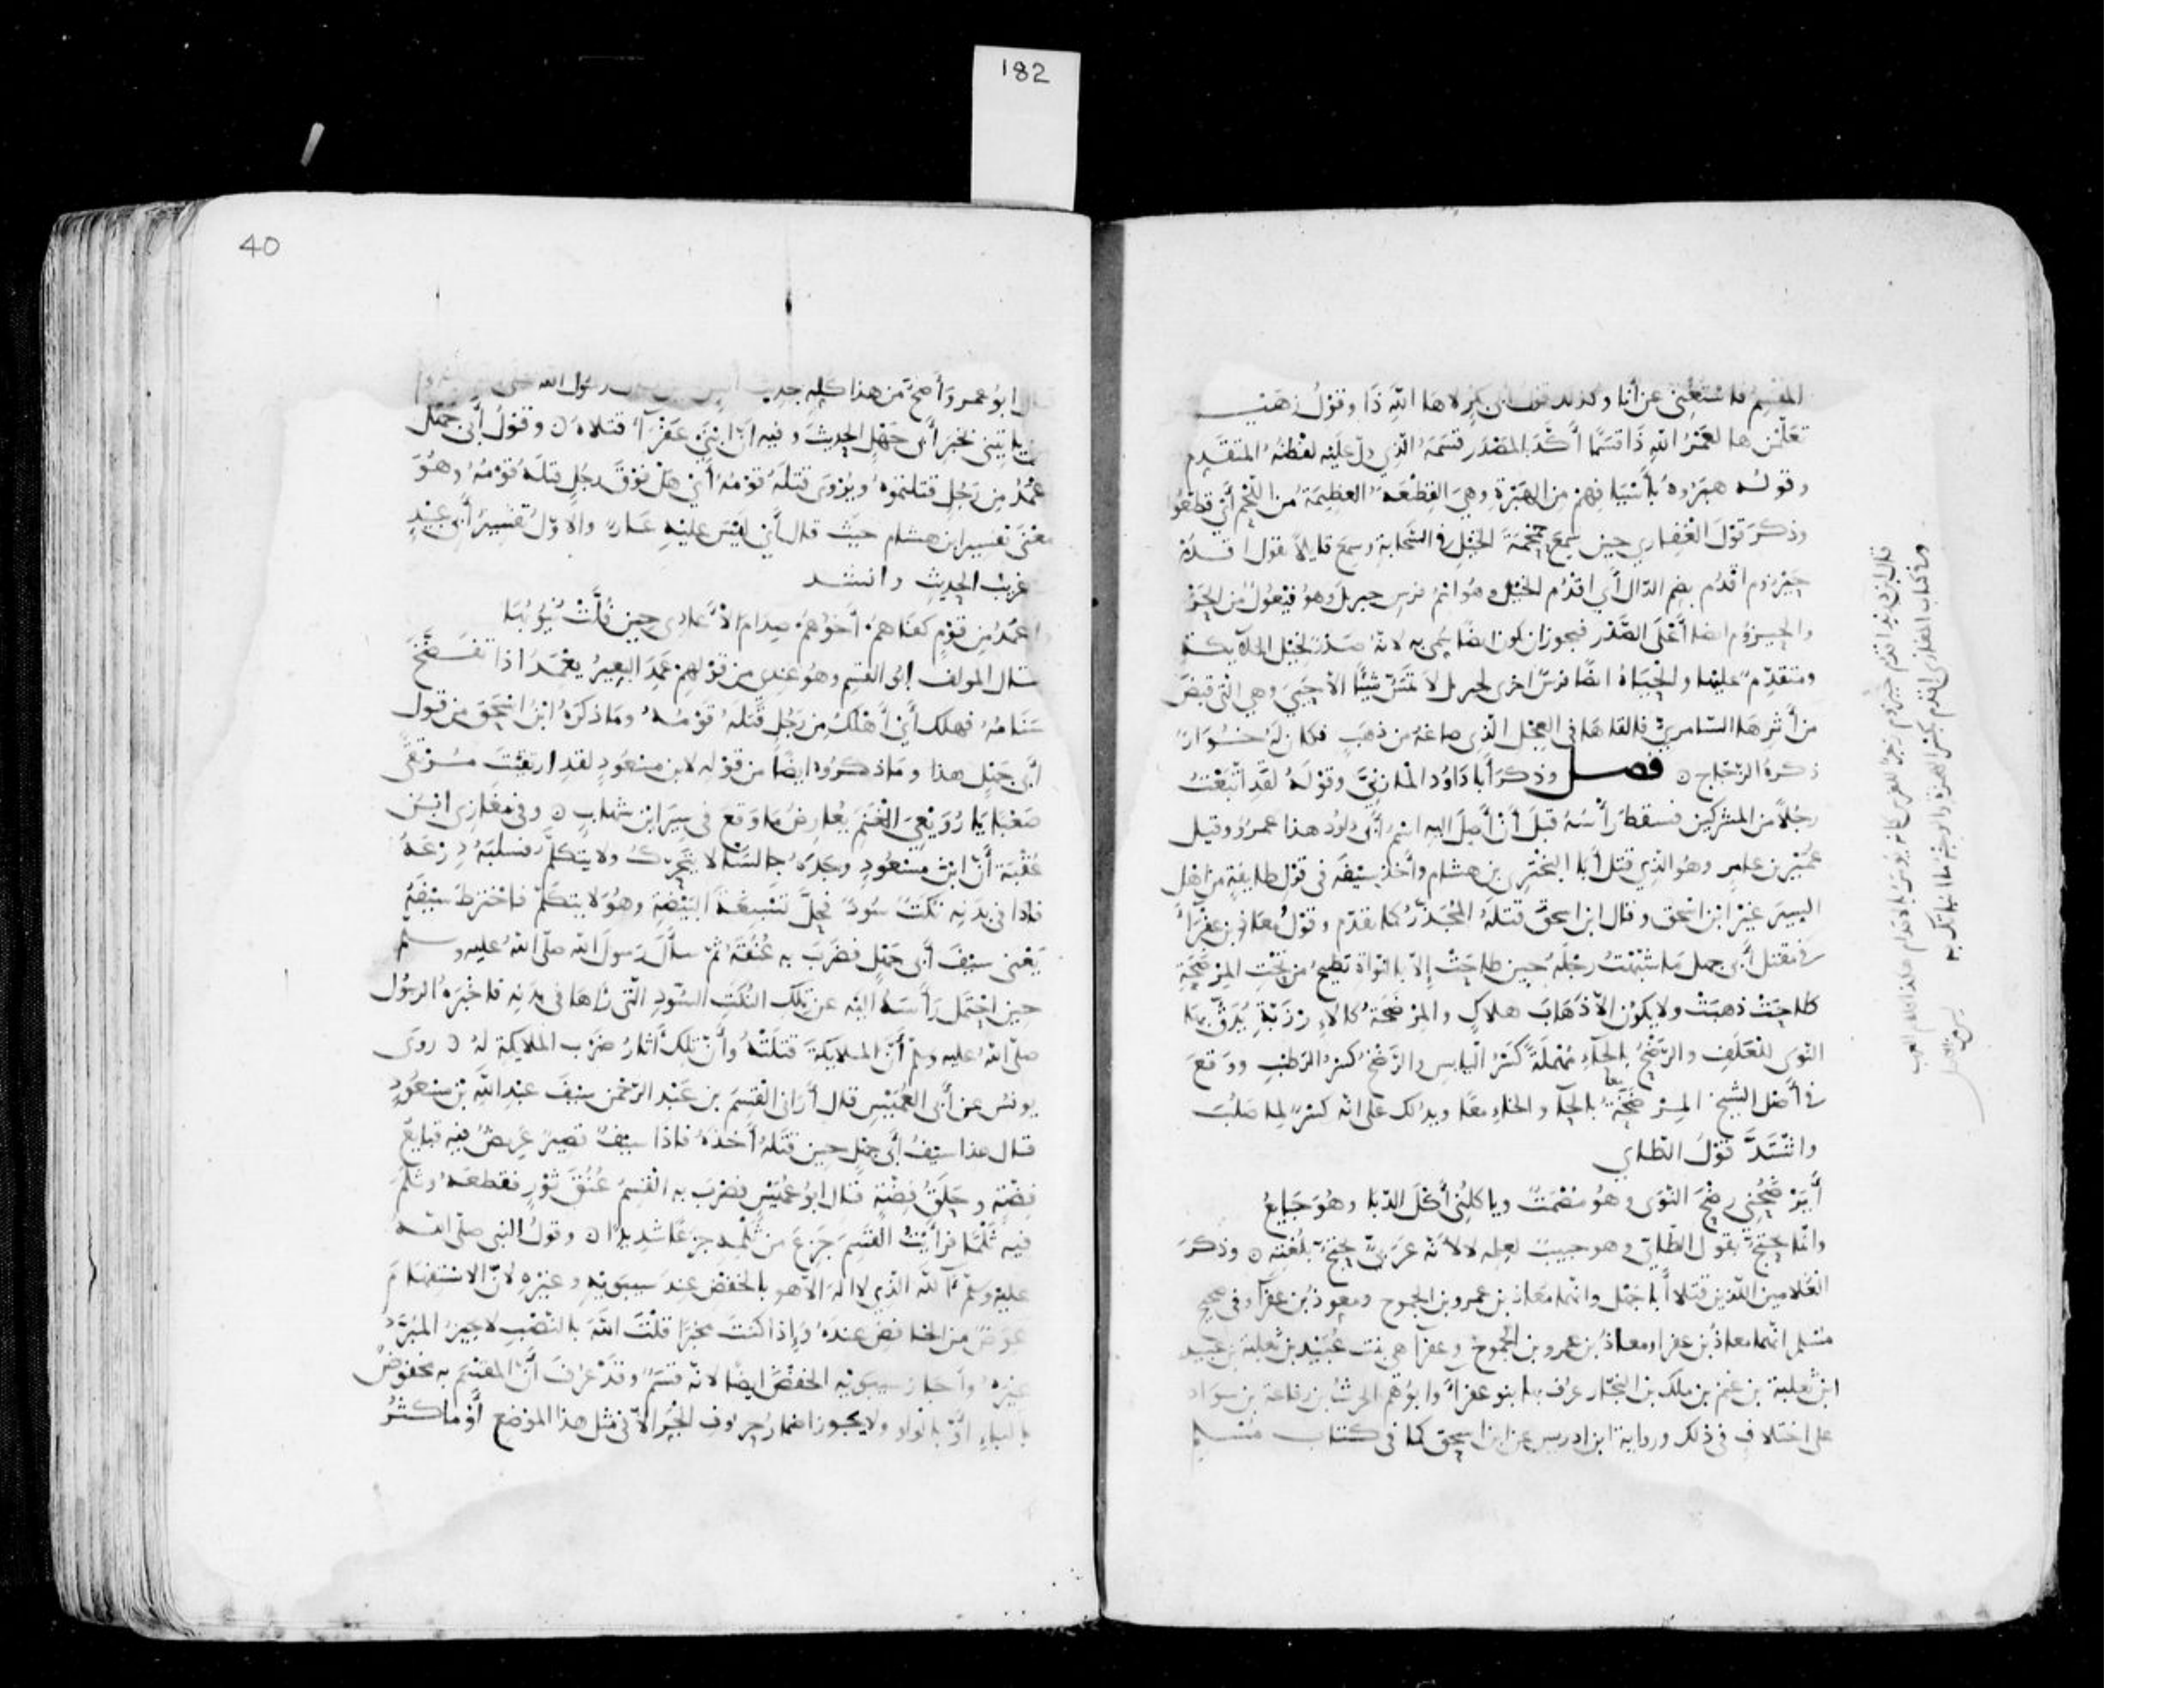 المقسم فاستغنى عن أنا وكذلك قول أبي بكر لاها الله ذا وقول زهير
تعلمن ها لعمر الله ذا قسما أكد بالمصدر قسمه الذي دل عليه لفظه المتقدم
وقوله هبروه بأسيافهم من الهبرة وهي القطعة العظيمة من اللحم أي قطعوه
وذكر قول الغفاري حين سمع حمحمة الخيل في السحابة وسمع قايلا يقول اقدم
حيزوم اقدم بضم الدال أي اقدم الخيل وهو اسم فرس جبريل وهو فيعول من الحزم
والحيزوم ايضا أعلى الصدر فيجوز ان يكون ايضا سمي به لانه صدر لخيل الملايكة
ومتقدم عليها والحياة ايضا فرس اخرى لجبريل لا تمس شيئا الا حيي وهي التي قبض
من أثرها السامري فالقاها في العجل الذي صاغه من ذهب فكان له خوار
ذكره الزجاج ه فصل وذكر أبا داود المازني وقوله لقد اتبعت
رجلا من المشركين فسقط رأسه قبل أن أصل اليه اسم أبي داود هذا عمرو وقيل
عمير بن عامر وهو الذي قتل أبا البختري بن هشام وأخذ سيفه في قول طايفة من أهل
السير غير ابن اسحق وقال ابن اسحق قتله المجذر كما تقدم وقول معاذ بن عفراء
في مقتل أبي جهل ما شبهت رجله حين طاحت إلا بالنواة تطيح من تحت المرضخة
طاحت ذهبت ولا يكون الا ذهاب هلاك والمرضخة كالاء رزبة يدق بها
النوى للعلف والرضح بالحاء مهملة كسر اليابس والرضخ كسر الرطب ووقع
في أصل الشيخ المرضحة بالحاء والخاء معا ويدلك على انه كسر لما صلب
وانشد قول الطاي
أترضحني رضح النوى وهو مصمت وياكلني أكل الدبا وهو جايع
وانما يحتج بقول الطاي وهو حبيب لعلمه لا لأنه عربي يحتج بلغته ه وذكر
الغلامين اللذين قتلا أبا جهل وانهما معاذ بن عمرو بن الجموح ومعوذ بن عفراء وفي صحيح
مسلم انهما معاذ بن عفرا ومعاذ بن عمرو بن الجموح وعفرا هي بنت عبيد بن ثعلبة بن عبيد
ابن ثعلبة بن غنم بن ملك بن النجار عرف بها بنو عفراء وابوهم الحرث بن رفاعة بن سواد
على اختلاف في ذلك ورواية ابن ادريس عن ابن اسحق كما في كتاب مسلم
قال ابن دريد اقدم حيزوم زجر للفرس
وفي كتاب المغازي اقدم بكسر الهمزة
182
40
قال ابو عمر وأصح من هذا كله حديث أنس رسول الله
ياتيني بخبر أبي جهل الحديث وفيه أن ابني عفراء قتلاه ه وقول أبي جهل
أعمد من رجل قتلتموه ويروى قتله قومه أي هل فوق رجل قتله قومه وهو
معنى تفسير ابن هشام حيث قال أي ليس عليه عار والاول تفسير أبي عبيد
غريب الحديث وانشد
وأعمد من قوم كفاهم أخوهم صدام الأعادي حين فلت نيوبها
قال المولف ابو القسم وهو عندي من قولهم عمد البعير يعمد اذا تفسخ
سنامه فهلك أي أهلك من رجل قتله قومه وما ذكره ابن اسحق من قول
أبي جهل هذا وما ذكروه ايضا من قوله لابن مسعود لقد ارتقيت مرتقى
صعبا يا رويعي الغنم يعارض ما وقع في سير ابن شهاب ه وفي مغازي ابن
عقبة أن ابن مسعود وجده جالسا لا يتحرك ولا يتكلم فسلبه درعه
فاذا في بدنه نكت سود فحل تسبغة البيضة وهو لا يتكلم فاخترط سيفه
يعني سيف أبي جهل فضرب به عنقه ثم سأل رسول الله صلى الله عليه وسلم
حين احتمل رأسه اليه عن تلك النكت السود التي رآها في بدنه فاخبره الرسول
صلى الله عليه وسلم أن الملايكة قتلته وأن تلك آثار ضرب الملايكة له ه روى
يونس عن أبي العميس قال أراني القسم بن عبد الرحمن سيف عبد الله بن مسعود
قال هذا سيف أبي جهل حين قتله أخذه فاذا سيف قصير عريض فيه قبايع
فضة وحلق فضة قال ابو عميس فضرب به القسم عنق ثور فقطعه وثلم
فيه ثلما فرأيت القسم جزع من ثلمه جزعا شديدا ه وقول النبي صلى الله
عليه وسلم آلله الذي لا اله الا هو بالخفض عند سيبويه وغيره لان الاستفهام
عوض من الخافض عنده وإذا كنت مخبرا قلت الله بالنصب لا يجيز المبرد
غيره وأجاز سيبويه الخفض ايضا لانه قسم وقد عرف أن المقسم به مخفوض
بالباء أو بالواو ولا يجوز اضمار حروف الجر الا في مثل هذا الموضع أو ما كثر